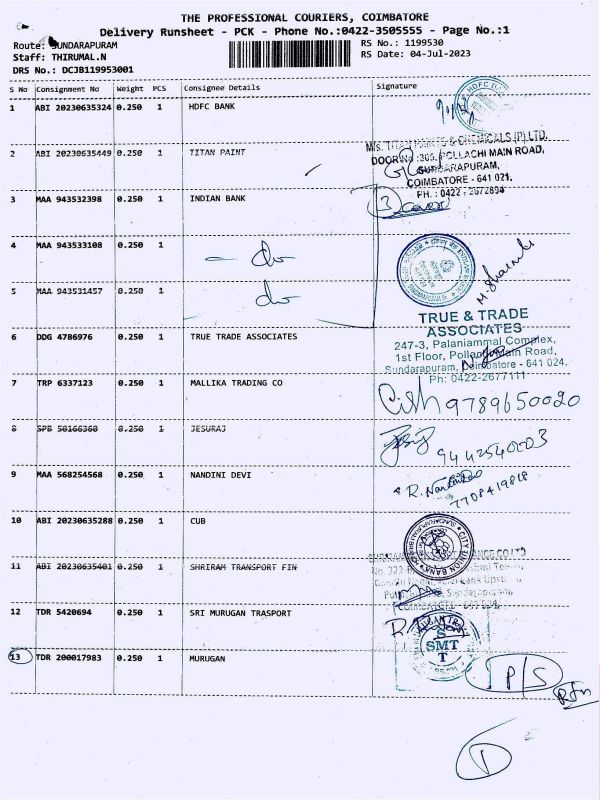 THE PROFESSIONAL COURIERS, COIMBATORE
Delivery Runsheet - PCK - Phone No.:0422-3505555 - Page No.:1
Route: SUNDARAPURAM
RS No.: 1199530
Staff: THIRUMAL.N
RS Date: 04-Jul-2023
DRS No.: DCJB119953001
S No Consignment No Weight PCS Consignee Details Signature
1 ABI 20230635324 0.250 1 HDFC BANK
2 ABI 20230635449 0.250 1 TITAN PAINT
M/S. TITAN PAINTS & CHEMICALS (P) LTD,
DOOR No :305, POLLACHI MAIN ROAD,
SUNDARAPURAM,
COIMBATORE - 641 021.
PH. : 0422 - 2672894
3 MAA 943532398 0.250 1 INDIAN BANK
3 covers
4 MAA 943533108 0.250 1
- do
5 MAA 943531457 0.250 1
do
6 DDG 4786976 0.250 1 TRUE TRADE ASSOCIATES
TRUE & TRADE
ASSOCIATES
247-3, Palaniammal Complex,
1st Floor, Pollachi Main Road,
Sundarapuram, Coimbatore - 641 024.
Ph: 0422-2677111
7 TRP 6337123 0.250 1 MALLIKA TRADING CO
9789650020
8 SPB 50166360 0.250 1 JESURAJ
9442540003
9 MAA 568254568 0.250 1 NANDINI DEVI
R. Nandini
7708419818
10 ABI 20230635288 0.250 1 CUB
CITY UNION BANK
11 ABI 20230635401 0.250 1 SHRIRAM TRANSPORT FIN
12 TDR 5420694 0.250 1 SRI MURUGAN TRASPORT
S
SMT
T
13 TDR 200017983 0.250 1 MURUGAN
P/S
Rtn
D